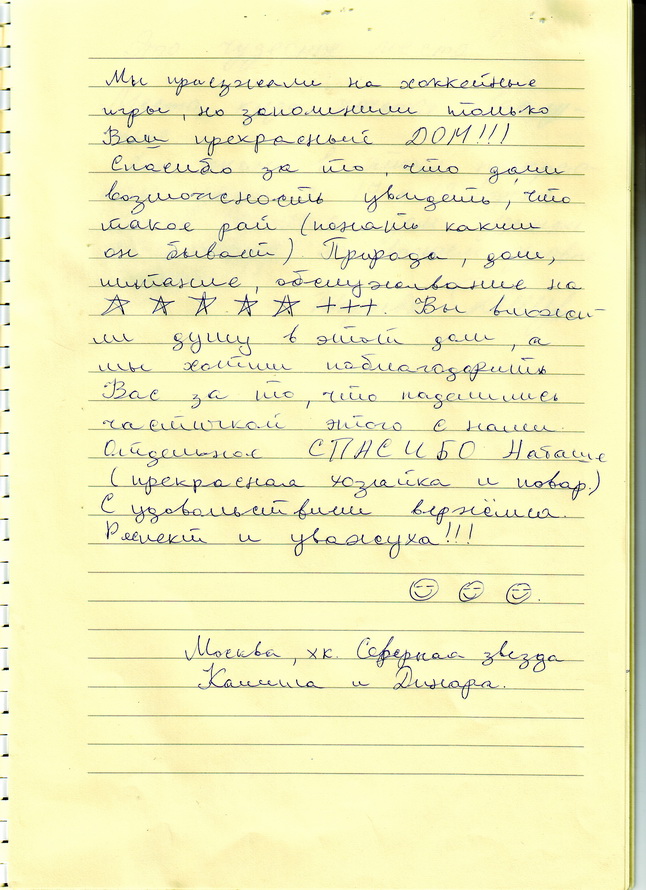 Мы приезжали на хоккейные
игры, но запомнили только
Ваш прекрасный ДОМ!!!
Спасибо за то, что дали
возможность увидеть, что
такое рай (понять каким
он бывает) Природа, дом,
питание, обслуживание на
☆ ☆ ☆ ☆ ☆ +++. Вы вложи-
ли душу в этот дом, а
мы хотим поблагодарить
Вас за то, что поделились
частичкой этого с нами.
Отдельное СПАСИБО Наташе
(прекрасная хозяйка и повар.)
С удовольствием вернёмся.
Респект и уважуха!!!
☺ ☺ ☺.
Москва, хк. Северная звезда
и Динара.